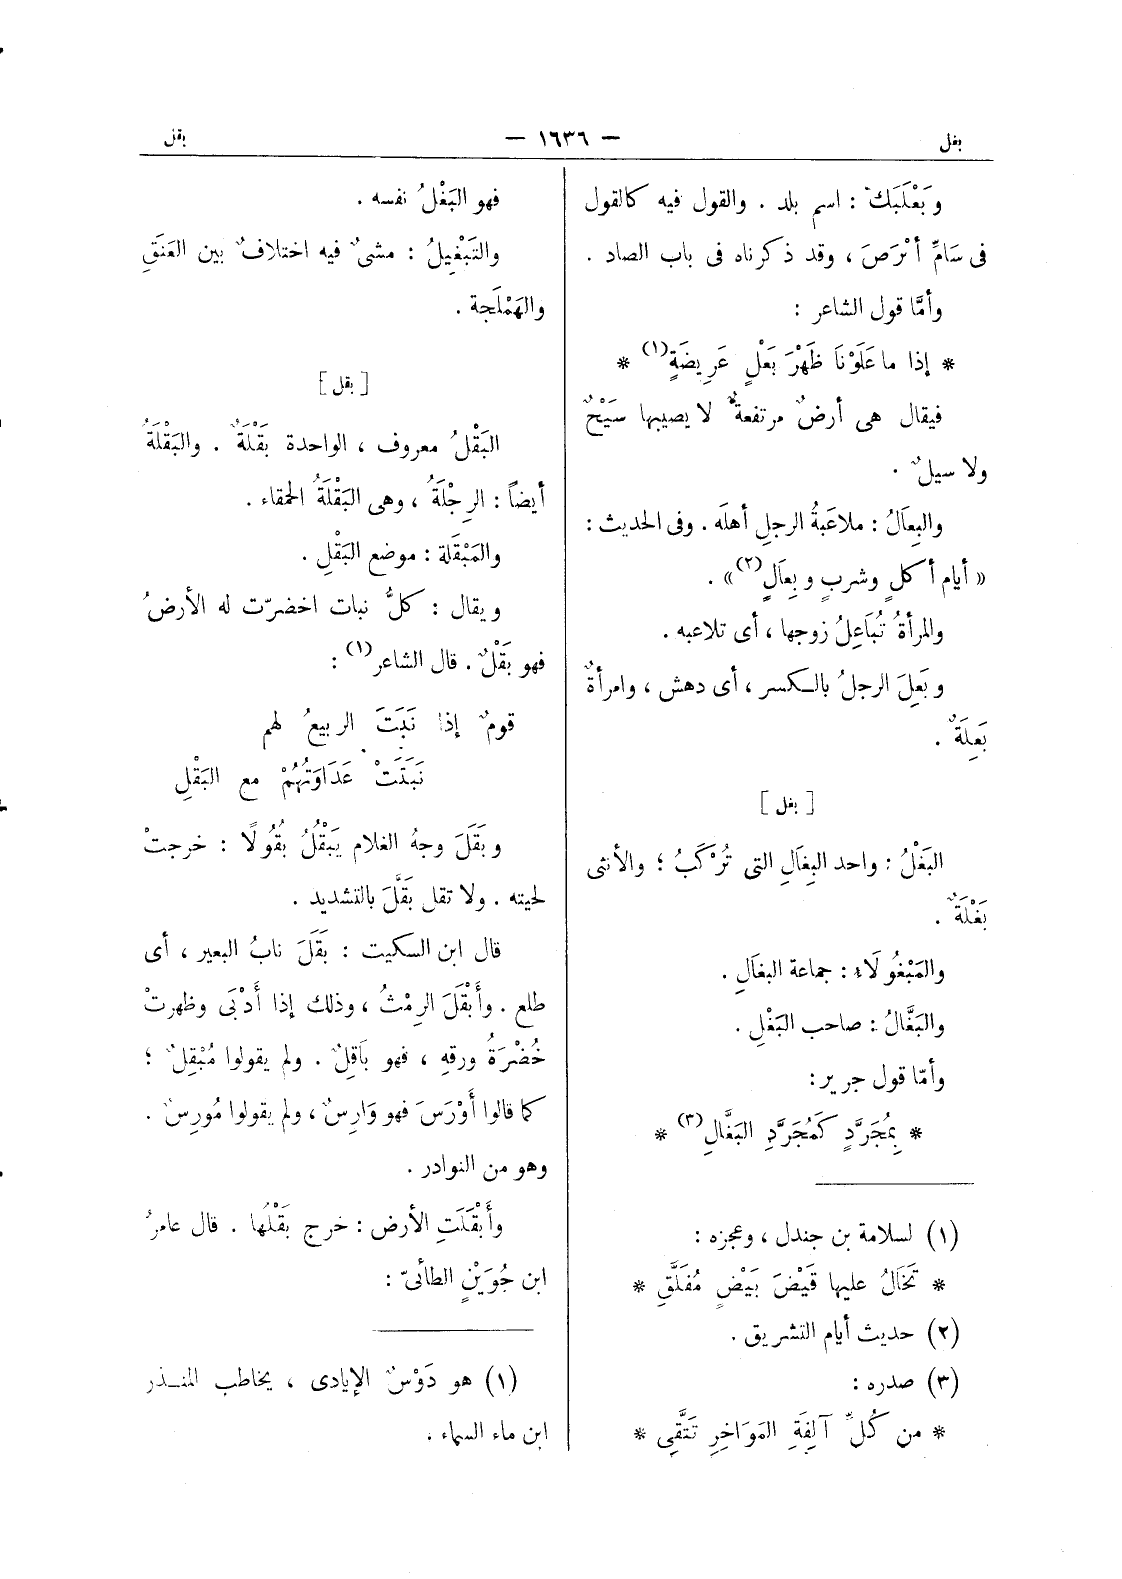 بغل
— ١٦٣٦ —
بقل
وَبَعْلَبَك : اسم بلد . والقول فيه كالقول
فى سَامِّ أَبْرَصَ ، وقد ذكرناه فى باب الصاد .
وأمَّا قول الشاعر :
* إذا ما عَلَوْنَا ظَهْرَ بَعْلٍ عَرِيضَةٍ(١) *
فيقال هى أرضٌ مرتفعةٌ لا يصيبها سَيْحٌ
ولا سيلٌ .
والبِعاَلُ : ملاعَبةُ الرجلِ أهلَه . وفى الحديث :
« أيام أكلٍ وشربٍ وبِعاَلٍ(٢) » .
والمرأةُ تُبَاعِلُ زوجها ، أى تلاعبه .
وبَعِلَ الرجلُ بالكسر ، أى دهش ، وامرأةٌ
بَعِلَةٌ .
[ بغل ]
البَغْلُ : واحد البِغاَلِ التى تُرْكَبُ ؛ والأنثى
بَغْلَةٌ .
والمَبْغُولَاء : جماعة البغاَلِ .
والبَغَّالُ : صاحب البَغْلِ .
وأمّا قول جرير :
* بِمُجَرَّدٍ كَمُجَرَّدِ البَغَّالِ(٣) *
(١) لسلامة بن جندل ، وعجزه :
* تَخَالُ عليها قَيْضَ بَيْضٍ مُفَلَّقِ *
(٢) حديث أيام التشريق .
(٣) صدره :
* من كُلِّ آلِفَةِ المَوَاخِرِ تَتَّقِى *
فهو البَغْلُ نفسه .
والتَبْغِيلُ : مشىٌ فيه اختلافٌ بين العَنَقِ
والهَمْلَجة .
[ بقل ]
البَقْلُ معروف ، الواحدة بَقْلَةٌ . والبَقْلَةُ
أيضاً : الرِجْلَةُ ، وهى البَقْلَةُ الحمقاء .
والمَبْقَلة : موضع البَقْلِ .
ويقال : كلُّ نبات اخضرّت له الأرضُ
فهو بَقْلٌ . قال الشاعر(١) :
قومٌ إذا نَبَتَ الربيعُ لهم
نَبَتَتْ عَدَاوَتُهُمْ مع البَقْلِ
وبَقَلَ وجهُ الغلام يَبْقُلُ بُقُولًا : خرجتْ
لحيته . ولا تقل بَقَّلَ بالتشديد .
قال ابن السكيت : بَقَلَ نابُ البعير ، أى
طلع . وأَبْقَلَ الرِمْثُ ، وذلك إذا أَدْبَى وظهرتْ
خُضْرَةُ ورقهِ ، فهو بَاقِلٌ . ولم يقولوا مُبْقِلٌ ؛
كما قالوا أَوْرَسَ فهو وَارِسٌ ، ولم يقولوا مُورِسٌ .
وهو من النوادر .
وأَبْقَلَتِ الأرض : خرج بَقْلُها . قال عامرُ
ابن جُوَيْنٍ الطائىّ :
(١) هو دَوْسٌ الإيادى ، يخاطب المنذر
ابن ماء السماء .